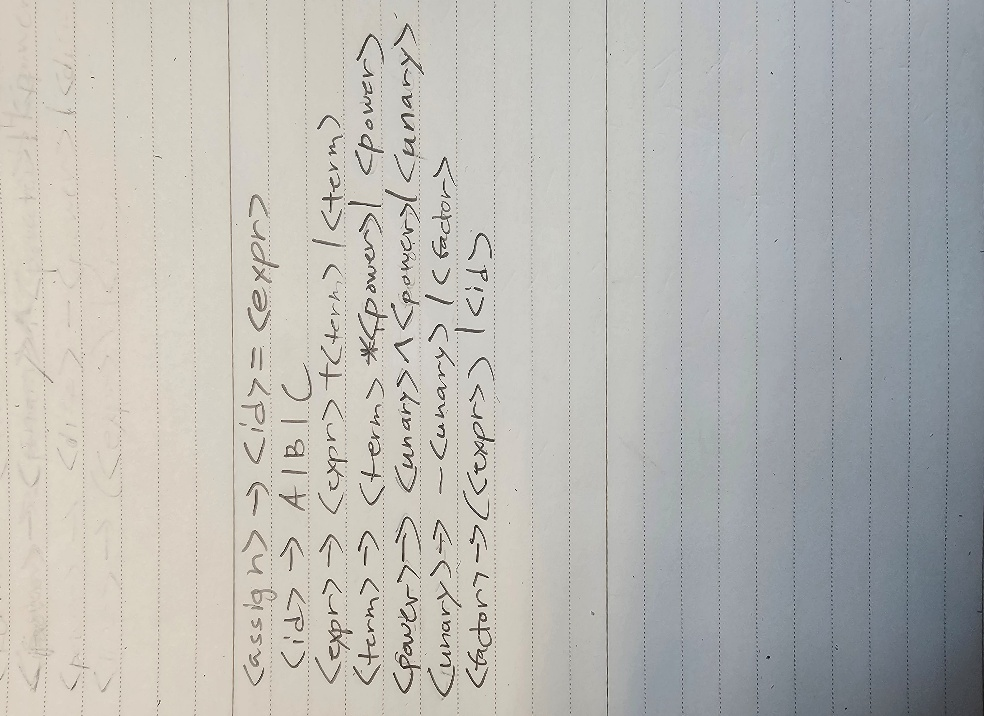 <assign> → <id> = <expr>
<id> → A | B | C
<expr> → <expr> + <term> | <term>
<term> → <term> * <power> | <power>
<power> → <unary> ^ <power> | <unary>
<unary> → - <unary> | <factor>
<factor> → (<expr>) | <id>